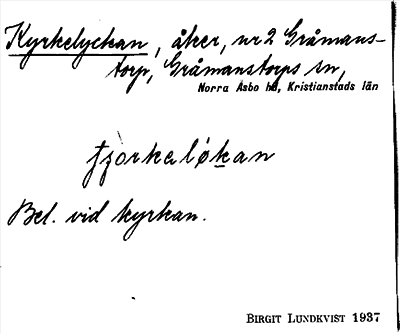 Kyrkelyckan, åker, nr 2 Gråmans-
torp, Gråmanstorps sn,
Norra Åsbo hd, Kristianstads län
tʃorkeløkan
Bel. vid kyrkan.
BIRGIT LUNDKVIST 1937